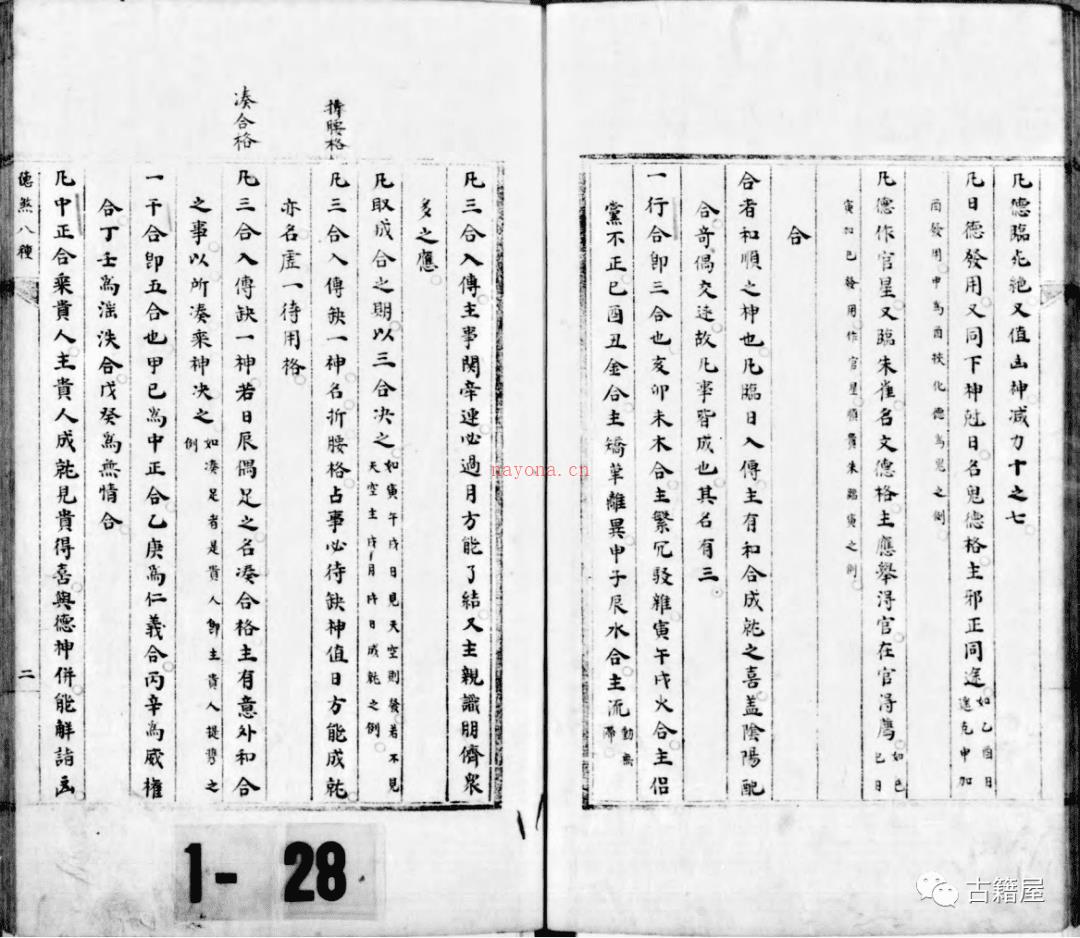 凡德臨死絶又值凶神减力十之七
凡日德發用又同下神尅日名鬼德格主邪正同途如乙酉日進元申加
酉發用申爲酉挾化德爲鬼之例
凡德作官星又臨朱雀名文德格主應舉淂官在官淂薦如己巳日
寅加巳發用作官星順貴朱臨寅之例
合
合者和順之神也凡臨日入傳主有和合成就之喜盖陰陽配
合奇偶交迕故凡事皆成也其名有三
一行合卽三合也亥卯未木合主繁冗駁雜寅午戌火合主侶
黨不正巳酉丑金合主矯革離異申子辰水合主流動無滯
凡三合入傳主事関牵連必過月方能了結又主親識朋儕衆
多之應
凡取成合之期以三合决之如寅午戌日見天空則發若不見天空主戌月時日成就之例
折腰格
凡三合入傳缺一神名折腰格占事必待缺神值日方能成就
亦名虛一待用格
凑合格
凡三合入傳缺一神若日辰偶足之名凑合格主有意外和合
之事以所凑乘神决之如凑足者是貴人卽主貴人提携之例
一干合卽五合也甲己爲中正合乙庚爲仁義合丙辛爲威權
合丁壬爲淫泆合戊癸爲無情合
凡中正合乘貴人主貴人成就見貴得喜與德神併能解諸凶
德煞八種
二
1-28
nayona.cn
古籍屋